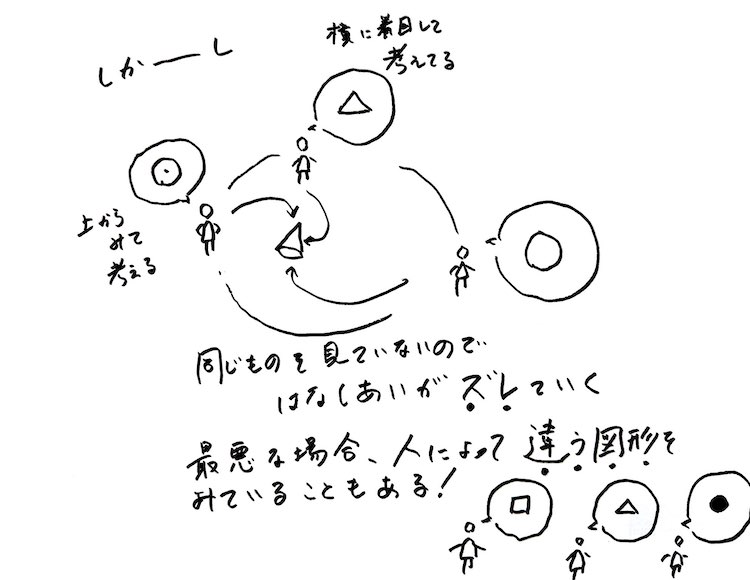 しかーーし
横に着目して
考えてる
上から
みて
考える
同じものを見ていないので
はなしあいがズレていく
最悪な場合、人によって違う図形を
みていることもある!